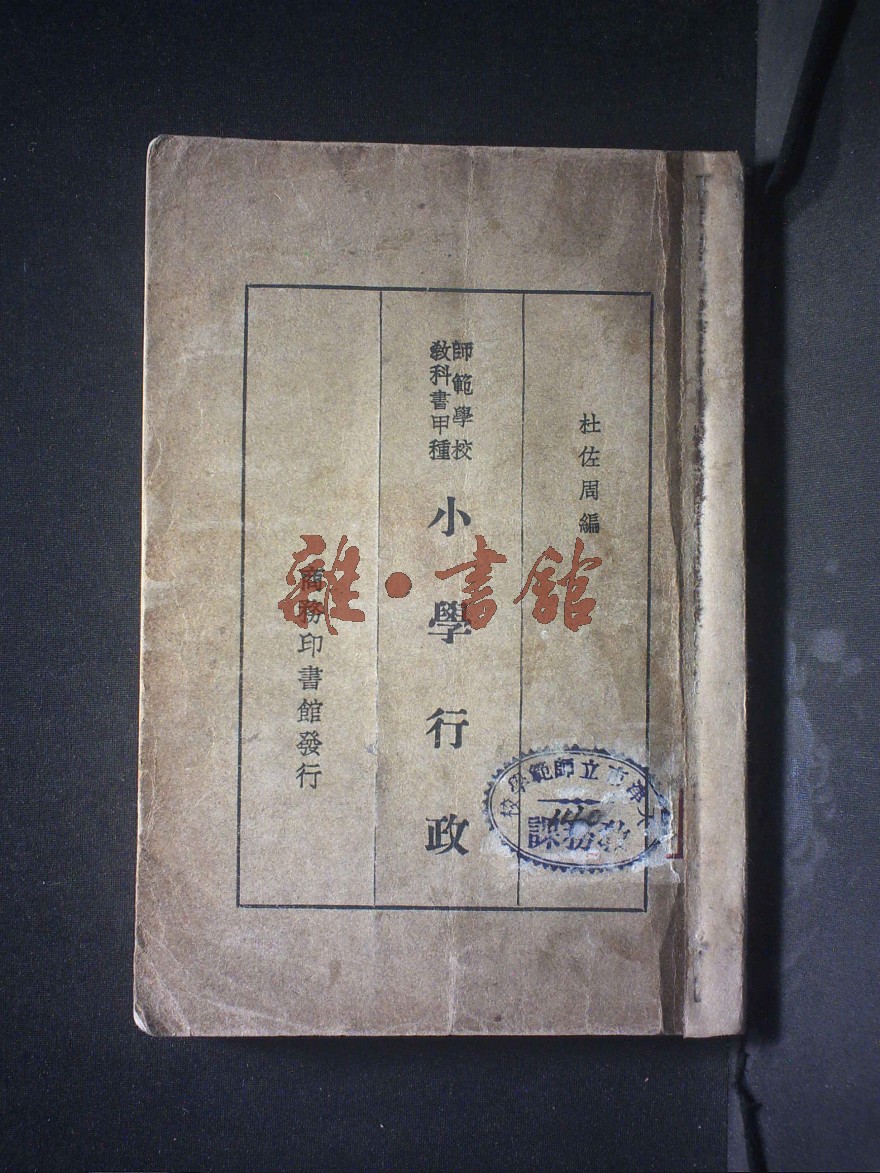 杜佐周編
師範學校
教科書甲種
小學行政
商務印書館發行
雜·書館
天津市立師範學校
教務課